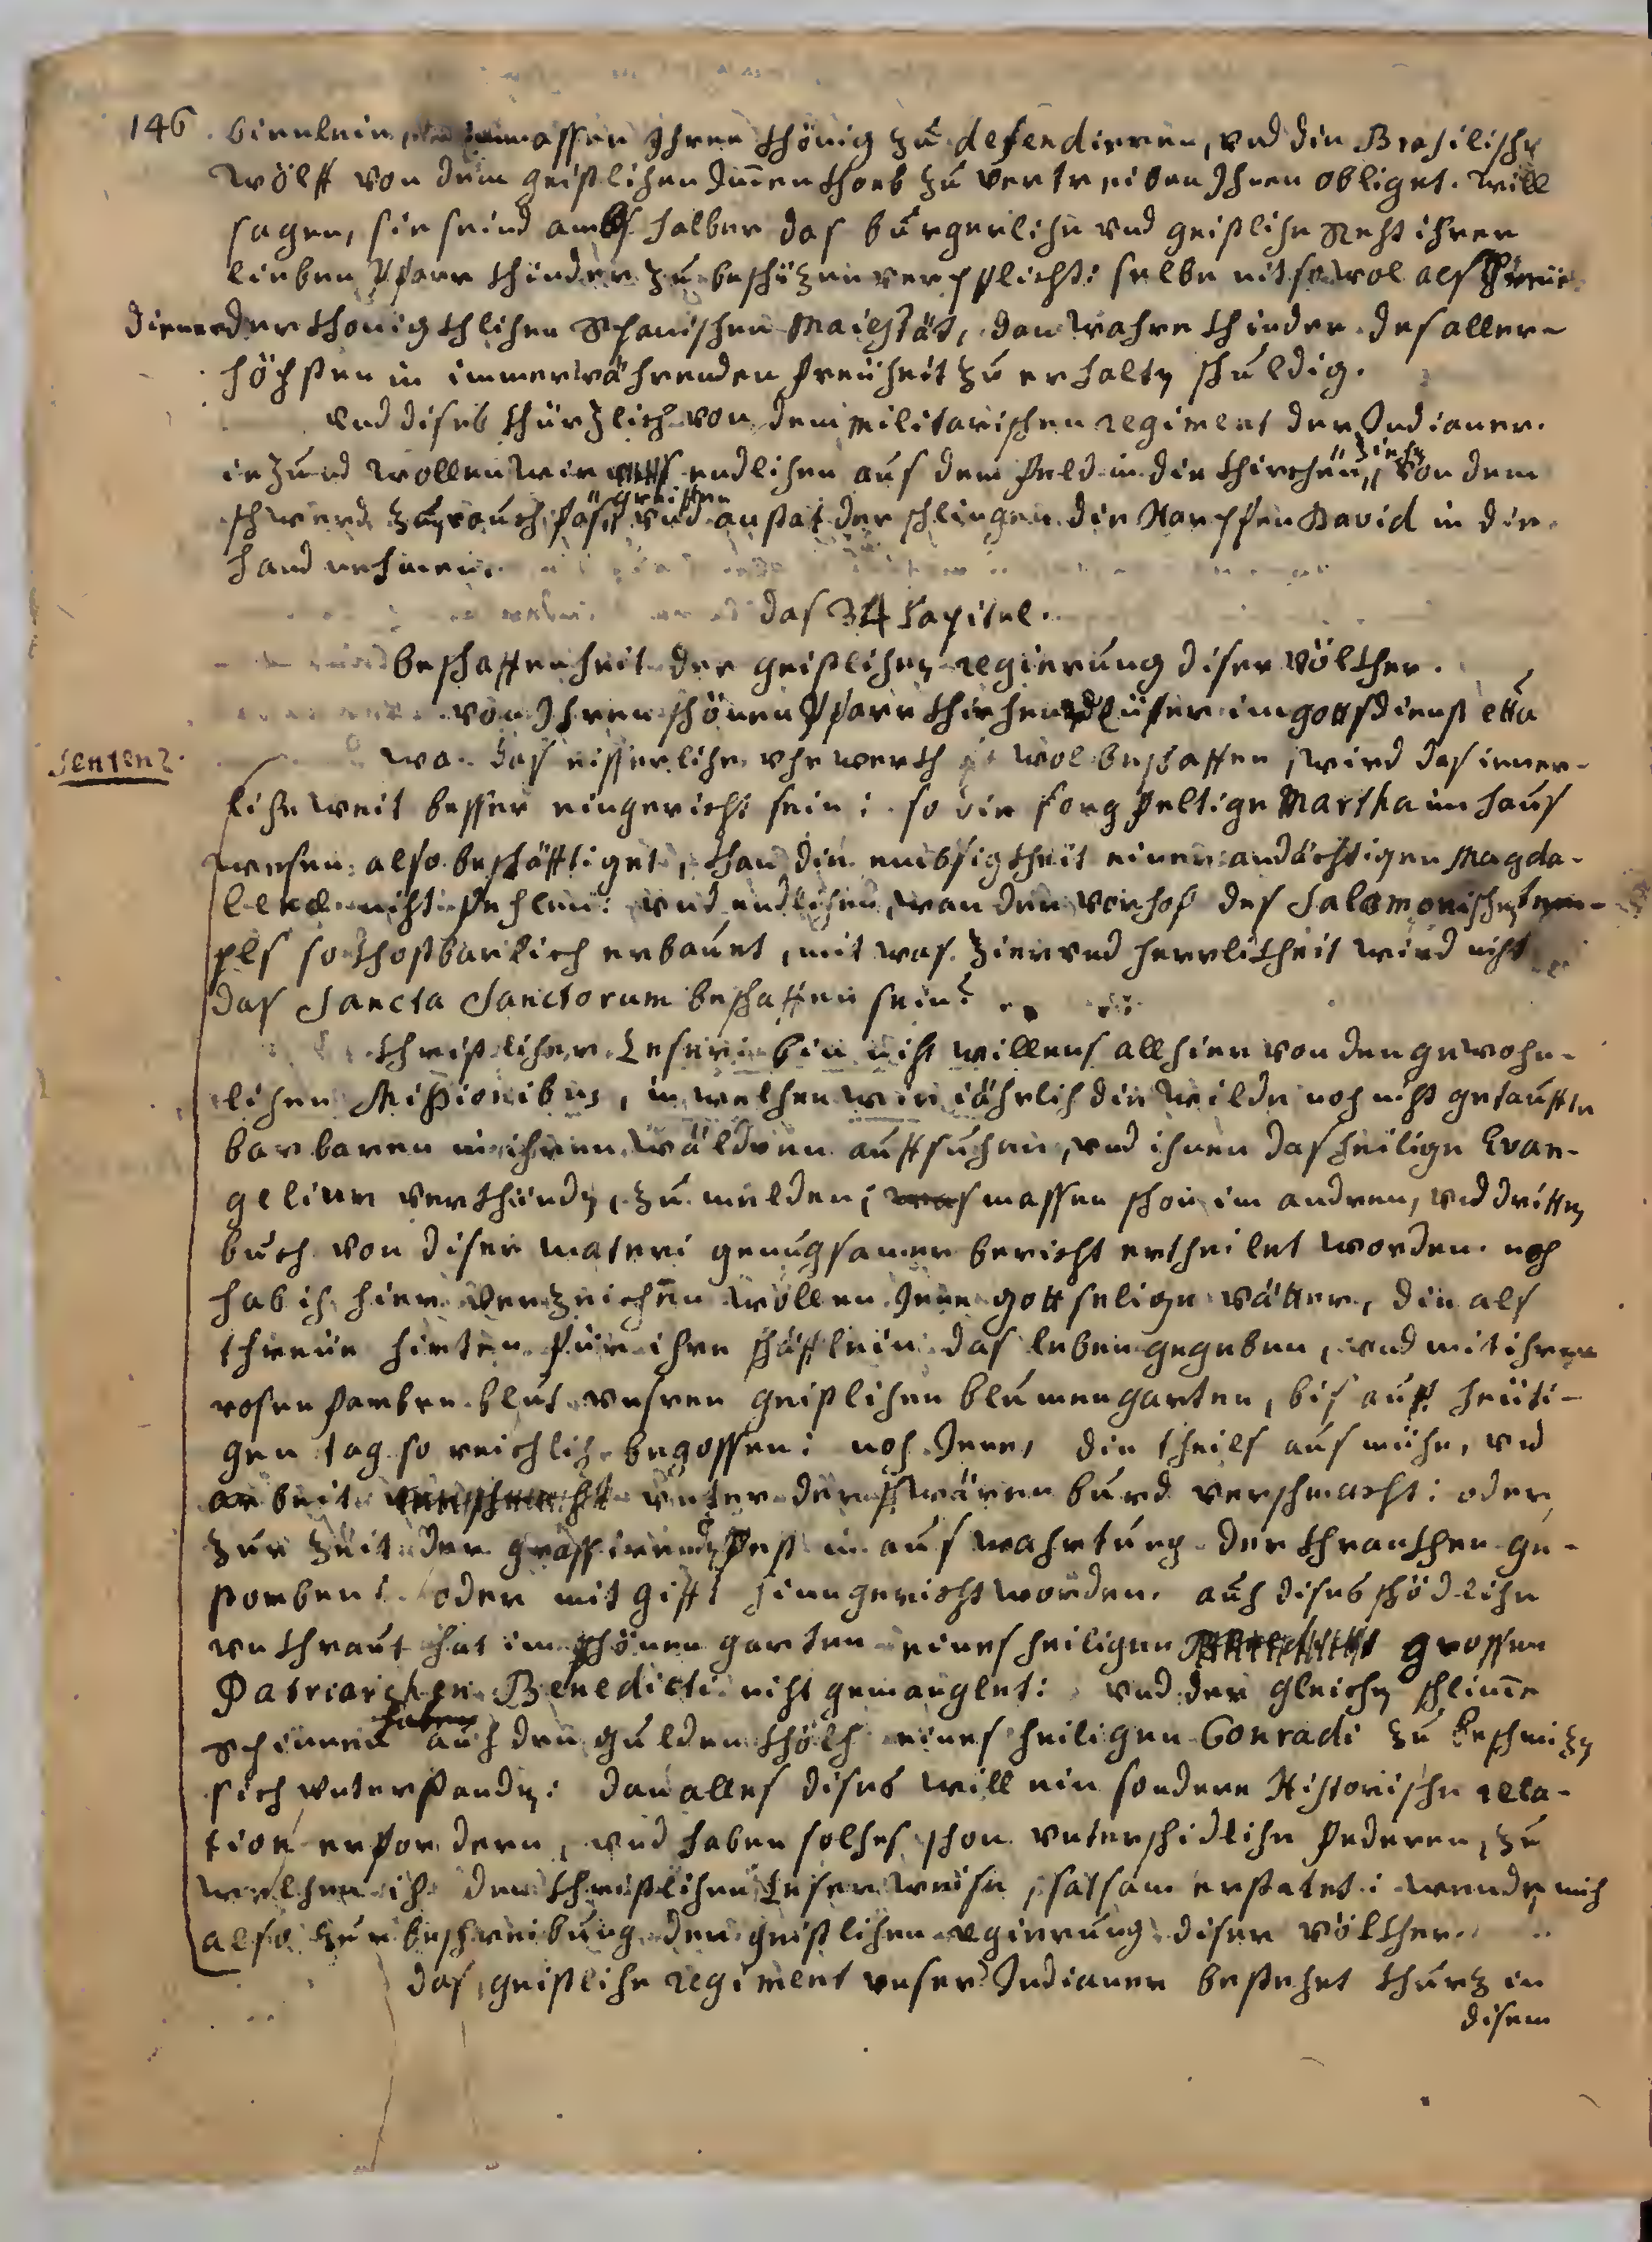 146. bienlein, massen Ihren khönig zu defendieren, und die Brasilische
wölff von dem geistlichen Immenkhorb zu vertreiben Ihnen obliget. will
sagen, sie seind ambts halber das bürgerliche und geistliche Recht ihrer
lieben Pfarr khinder zu beschüzen verpflicht: selbe nit so wol als
diener der khönigkhlichen Spanischen Maiestät, dan wahre khinder des aller-
höchsten in immerwährenden freüheit zu erhalten schuldig.
Und dises khürzlich von dem militarischen regiment der Indianer.
iezund wollen wir endlichen aus dem feld in die khirchen ziehen, von dem
schwerd zum rauchfass greiffen und anstat der schlingen die Harpffen David in die
hand nehmen.
das 34 Capitel.
beschaffenheit der geistlichen regierung diser völkher.
von Ihren schönen Pfarrkhirchen Eüfer im gottsdienst etca
Sentenz.
wo das eisserliche uhrwerkh wol beschaffen, wird das inner-
liche weit besser eingericht sein: so die sorgfeltige Martha im haus
wesen also beschäfftiget, khan die embsigkheit einer andächtigen Magda-
lena nicht fehlen: und endlichen, wan der vorhof des Salomonischen tem-
pls so khostbarlich erbauet, mit was zier und herrlikheit wird nicht
das Sancta Sanctorum beschaffen sein?
khristlicher Leser: bin nicht willens allhier von den gewohn-
lichen Missionibus, in welchen wir jährlich die wilde noch nicht getauffte
barbaren in ihren wäldren auffsuchen, und ihnen das heilige Evan-
gelium verkhünden, zu melden; massen schon im andren, und dritten
buch von diser materi genugsamer bericht ertheilet worden. noch
hab ich hier verzeichnen wollen Jene gottselige vätter, die als
threüe hirten für ihre schäfflein das leben gegeben, und mit ihrem
rosenfarben blut unsren geistlichen blumengarten, bis auff heüti-
gen tag so reichlich begossen: noch Jene, die theils aus mühe, und
arbeit unter der schwären burd verschmacht: oder
zur zeit der grassirenden pest in auswahrtung der khrankhen ge-
storben: oder mit gifft hinngericht worden. auch dises schödliche
unkhraut hat im schönen garten eines heiligen grossen
Patriarchen Benedicti nicht gemanglet: und der gleichen schlime
Spinnen haben auch den gulden khölch eines heiligen Conradi zu beschmizen
sich unterstanden: dan alles dises will ein sondere Historische rela-
tion erfordern, und haben solches schon unterschidliche federen, zu
welchen ich den khristlichen Leser weise, satsam erstatet: wende mich
also zur beschreibung der geistlichen regierung diser völkher.
das geistliche regiment unser Indianer bestehet khurz in
disem